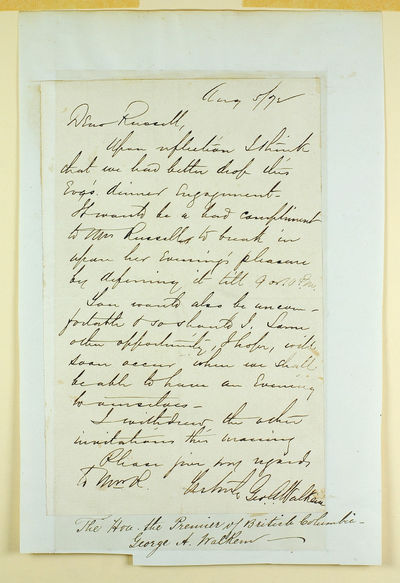 Aug 5/72
Dear Russell,
Upon reflection I think
that we had better drop this
Evgs. dinner Engagement -
It would be a bad compliment
to Mrs Russell to break in
upon her Evening's pleasure
by deferring it till 9 or 10 P.M.
You would also be uncom-
fortable & so should I. Some
other opportunity, I hope, will
soon occur, when we shall
be able to have an Evening
to ourselves -
I withdrew the other
invitations this morning
Please give my regards
to Mrs R.
Geo. A. Walkem
The Hon. the Premier of British Columbia -
George A. Walkem -